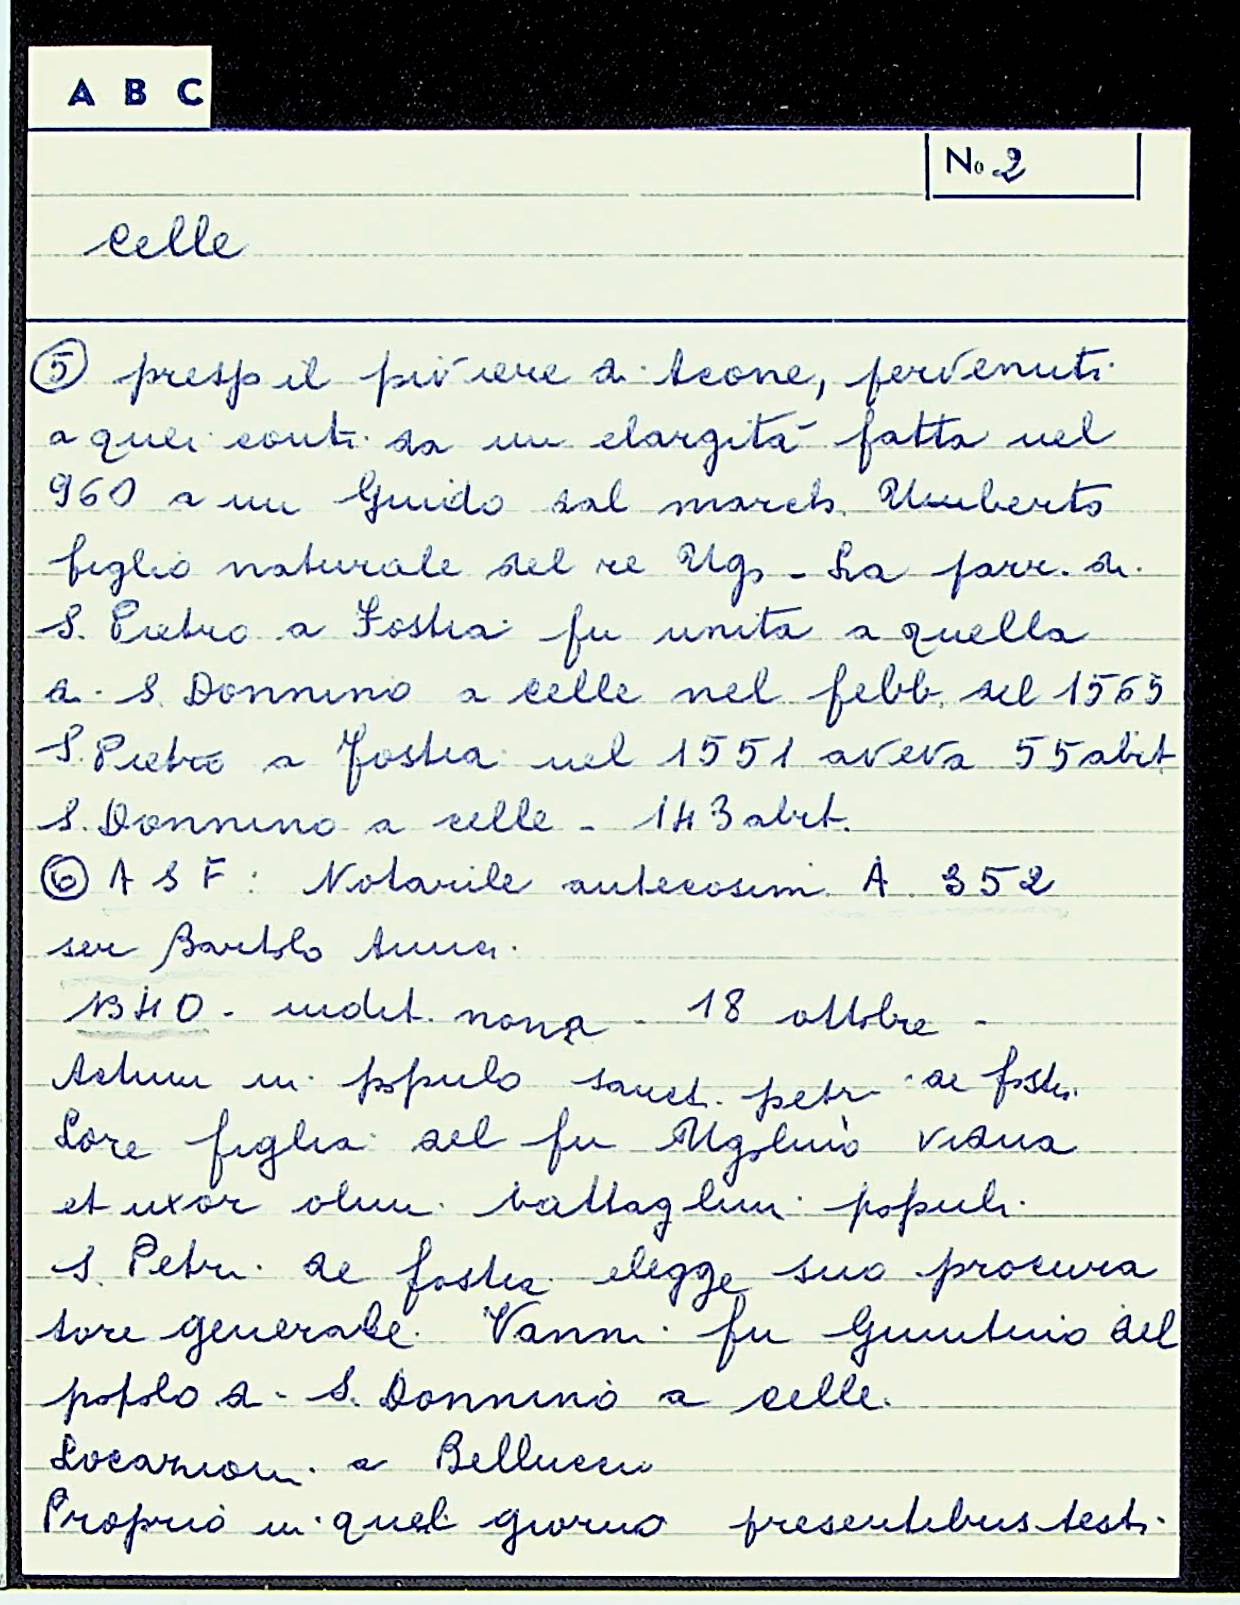 A B C
No 2
Celle
⑤ presso il piviere di Acone, pervenuti
a quei conti da un elargità fatta nel
960 a un Guido dal march. Umberto
figlio naturale del re Ugo - La parr. di
S. Pietro a Fostia fu unita a quella
di S. Donnino a Celle nel febb. del 1565
S. Pietro a Fostia nel 1551 aveva 55 abit
S. Donnino a Celle - 143 abit.
⑥ A S F : Notarile antecosim. A 352
ser Bartolo Amici
1340 - indit. nona - 18 ottobre -
Actum in populo sanct. petri de fosti.
Lore figlia del fu Ugolino vidua
et uxor olim battaglini populi
S. Petri de fostia elegge suo procura
tore generale Vanni fu Giuntino del
popolo di S. Donnino a Celle.
Locazioni a Bellucci
Proprio in quel giorno presentibus testi